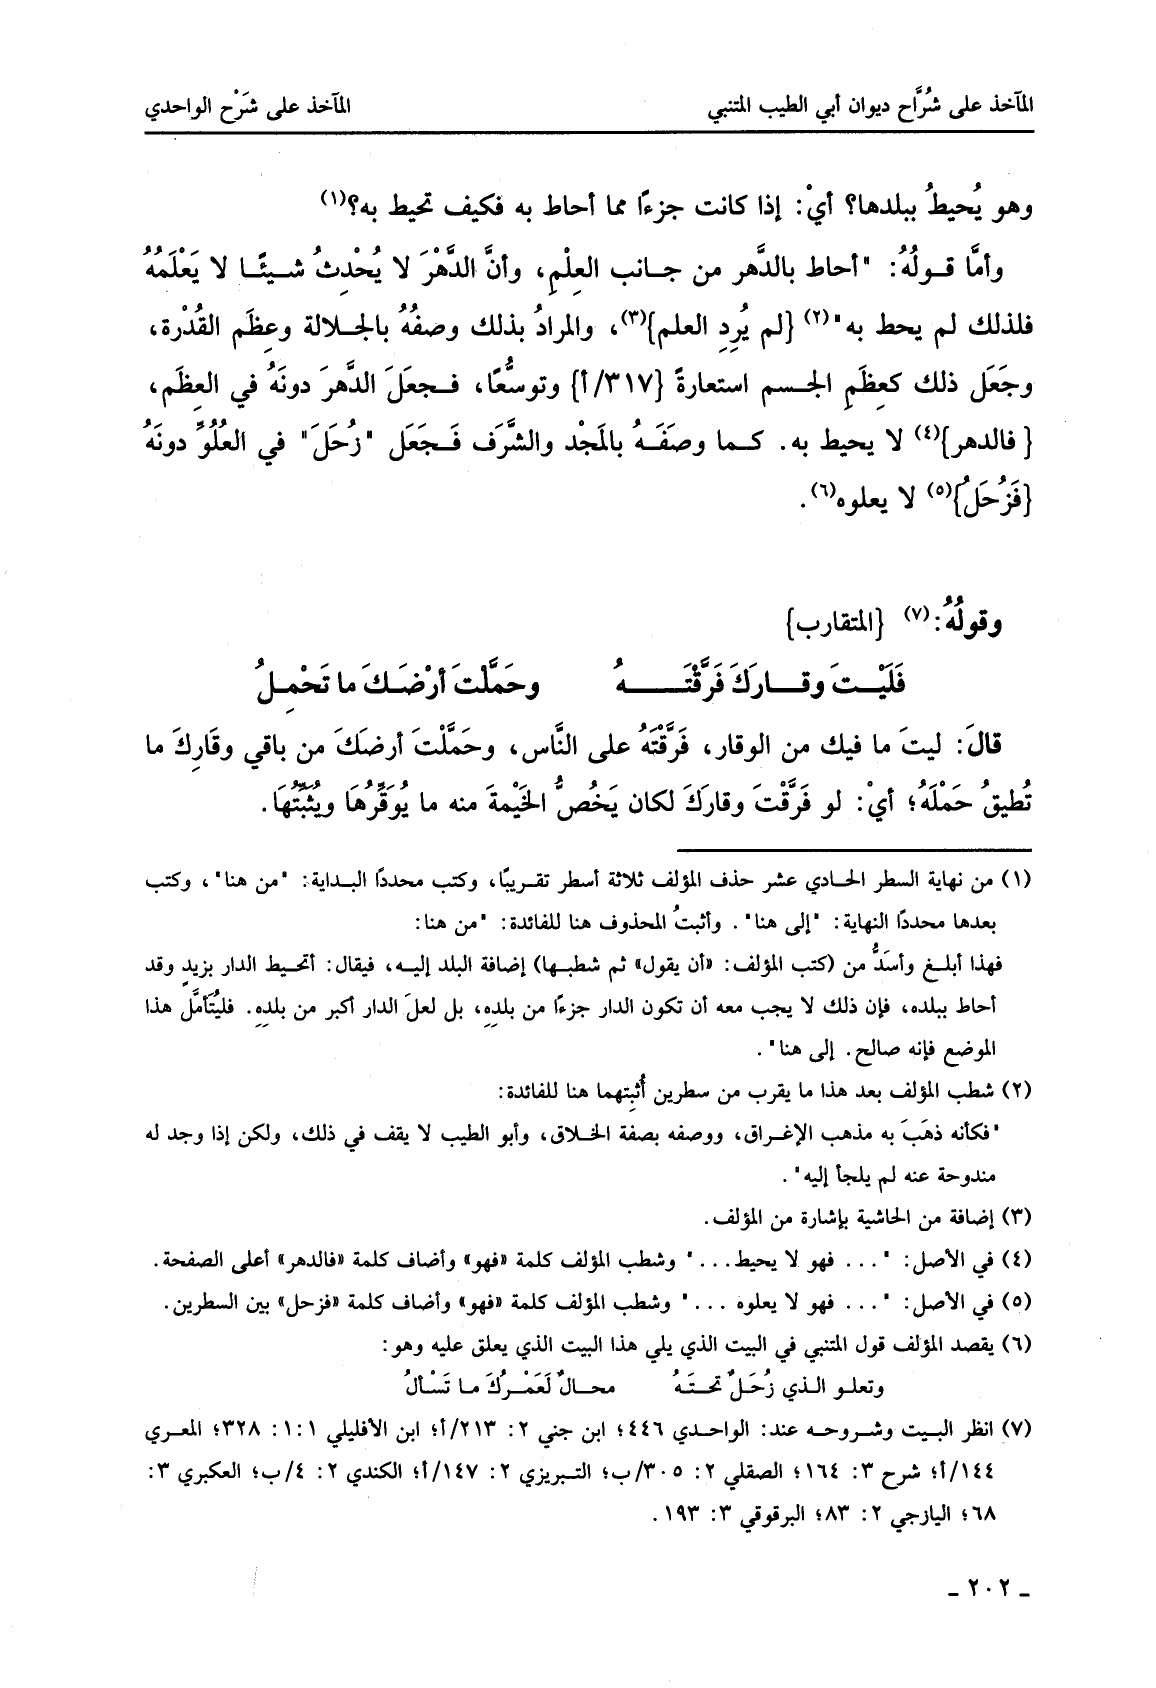 المآخذ على شُرَّاح ديوان أبي الطيب المتنبي المآخذ على شَرْح الواحدي
وهو يُحيطُ ببلدها؟ أيْ: إذا كانت جزءًا مما أحاط به فكيف تحيط به؟(١)
وأمَّا قولُهُ: "أحاط بالدَّهر من جانب العِلْمِ، وأنَّ الدَّهْرَ لا يُحْدِثُ شيئًا لا يَعْلَمُهُ
فلذلك لم يحط به"(٢) {لم يُرِدِ العلم}(٣)، والمرادُ بذلك وصفُهُ بالجلالة وعِظَم القُدْرة،
وجَعَل ذلك كعِظَمِ الجسم استعارةً {٣١٧/أ} وتوسُّعًا، فجعَلَ الدَّهرَ دونَهُ في العِظَم،
{فالدهر}(٤) لا يحيط به. كما وصَفَهُ بالمَجْد والشَّرَف فَجَعَل "زُحَلَ" في العُلُوِّ دونَهُ
{فَزُحَلُ}(٥) لا يعلوه(٦).
وقولُهُ:(٧) {المتقارب}
فَلَيْتَ وقارَكَ فَرَّقْتَهُ وحَمَّلْتَ أرْضَكَ ما تَحْمِلُ
قالَ: ليتَ ما فيك من الوقار، فَرَّقْتَهُ على النَّاس، وحَمَّلْتَ أرضَكَ من باقي وقَارِكَ ما
تُطيقُ حَمْلَهُ؛ أيْ: لو فَرَّقْتَ وقارَكَ لكان يَخُصُّ الخَيْمةَ منه ما يُوَقِّرُهَا ويُثَبِّتُهَا.
(١) من نهاية السطر الحادي عشر حذف المؤلف ثلاثة أسطر تقريبًا، وكتب محددًا البداية: "من هنا"، وكتب
بعدها محددًا النهاية: "إلى هنا". وأثبتُ المحذوف هنا للفائدة: "من هنا:
فهذا أبلغ وأسَدُّ من (كتب المؤلف: «أن يقول» ثم شطبها) إضافة البلد إليه، فيقال: أتحيط الدار بزيدٍ وقد
أحاط ببلده، فإن ذلك لا يجب معه أن تكون الدار جزءًا من بلدِهِ، بل لعلَ الدار أكبر من بلدِهِ. فليُتَأمَّل هذا
الموضع فإنه صالح. إلى هنا".
(٢) شطب المؤلف بعد هذا ما يقرب من سطرين أُثبِتهما هنا للفائدة:
"فكأنه ذهَبَ به مذهب الإغراق، ووصفه بصفة الخلاق، وأبو الطيب لا يقف في ذلك، ولكن إذا وجد له
مندوحة عنه لم يلجأ إليه".
(٣) إضافة من الحاشية بإشارة من المؤلف.
(٤) في الأصل: "... فهو لا يحيط..." وشطب المؤلف كلمة «فهو» وأضاف كلمة «فالدهر» أعلى الصفحة.
(٥) في الأصل: "... فهو لا يعلوه ..." وشطب المؤلف كلمة «فهو» وأضاف كلمة «فزحل» بين السطرين.
(٦) يقصد المؤلف قول المتنبي في البيت الذي يلي هذا البيت الذي يعلق عليه وهو:
وتعلو الذي زُحَلٌ تحتَهُ محالٌ لَعَمْرُكَ ما تَسْألُ
(٧) انظر البيت وشروحه عند: الواحدي ٤٤٦؛ ابن جني ٢: ٢١٣/أ؛ ابن الأفليلي ١:١: ٣٢٨؛ المعري
١٤٤/أ؛ شرح ٣: ١٦٤؛ الصقلي ٢: ٣٠٥/ب؛ التبريزي ٢: ١٤٧/أ؛ الكندي ٢: ٤/ب؛ العكبري ٣:
٦٨؛ اليازجي ٢: ٨٣؛ البرقوقي ٣: ١٩٣.
ـ ٢٠٢ ـ